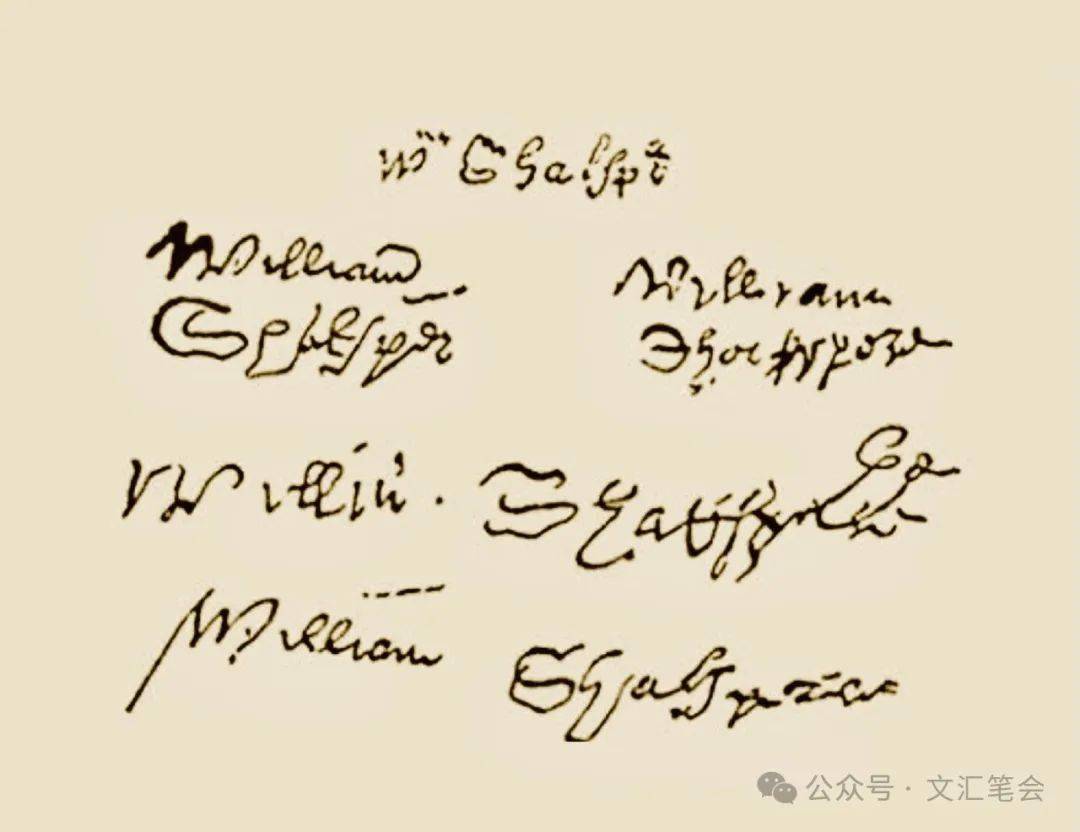 Wm Shakspē
William
Shakspēr
William
Shakspere
Willm Shakspere
William Shakspeare
公众号 · 文汇笔会